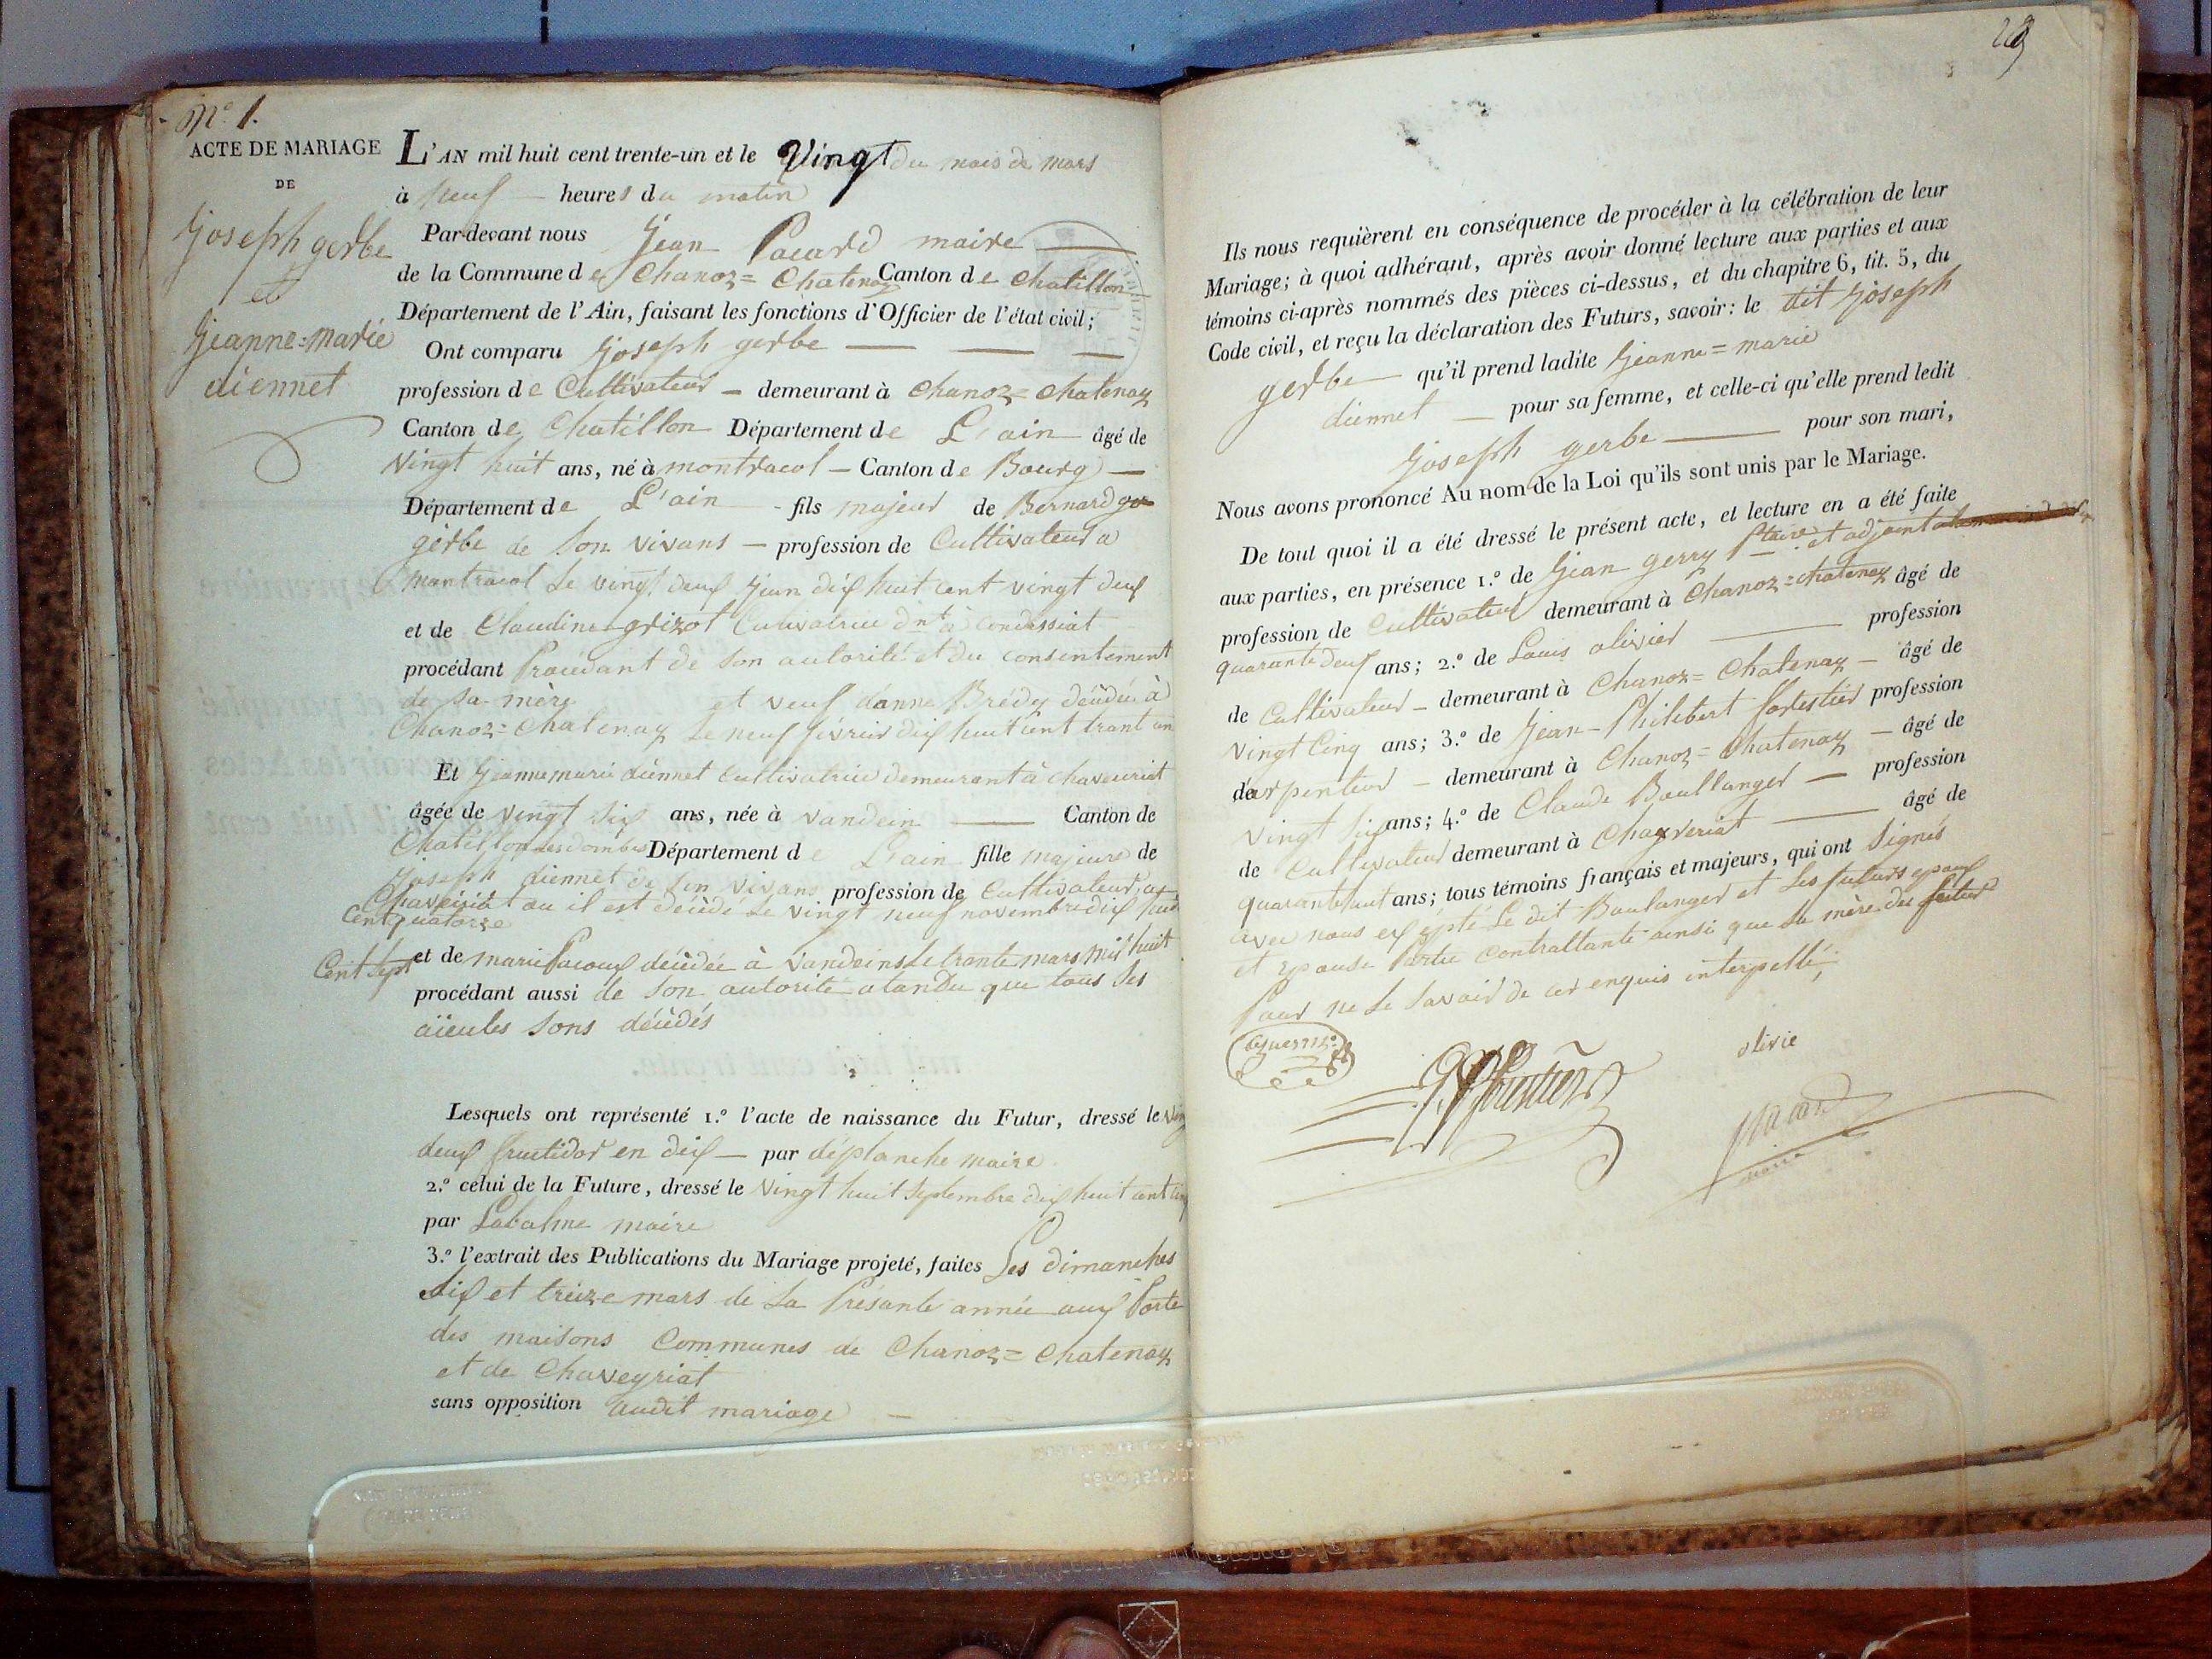 N.o 1.
ACTE DE MARIAGE
DE
Joseph gerbe
et
Jeanne=marie
diennet
L'AN mil huit cent trente-un et le Vingt du mois de mars
à neuf — heures du matin
Par-devant nous Jean Pacard maire
de la Commune de Chanoz=Chatenay Canton de Chatillon
Département de l'Ain, faisant les fonctions d'Officier de l'état civil;
Ont comparu Joseph gerbe — — —
profession de Cultivateur — demeurant à Chanoz=Chatenay
Canton de Chatillon Département de L'ain âgé de
Vingt huit ans, né à montracol — Canton de Bourg —
Département de L'ain - fils majeur de Bernard
gerbe de son vivans — profession de Cultivateur a
montracol Le vingt deux Juin dix huit cent vingt deux
et de Claudine grizot Cultivatrice d.nt à Condessiat
procédant Procédant de son autorité et du consentement
de sa mère et veuf d'anne Brédy décédée à
Chanoz=Chatenay Le neuf février dix huit cent trant un
Et Jeanne marie diennet Cultivatrice demeurant à Chaveuriat
âgée de vingt six ans, née à vandein — Canton de
Chatillon les dombes Département de L'ain fille majeure de
Joseph diennet de son vivans profession de Cultivateur, a
Chaveiriat ou il est décédé Le vingt neuf novembre dix huit
Cent quatorze
et de marie Pacoux décédée à Vandeins Le trante mars mil huit
Cent sept
procédant aussi de son autorité atandu que tous ses
aïeules sons décédés
Lesquels ont représenté 1.º l'acte de naissance du Futur, dressé le Ving
deux fructidor en dix — par déplanche maire
2.º celui de la Future, dressé le Vingt huit Septembre dix huit cent cinq
par Labalme maire
3.º l'extrait des Publications du Mariage projeté, faites Les dimanches
six et treize mars de La Présante année aux Porte
des maisons Communes de Chanoz=Chatenay
et de Chaveyriat
sans opposition audit mariage —
Ils nous requièrent en conséquence de procéder à la célébration de leur
Mariage; à quoi adhérant, après avoir donné lecture aux parties et aux
témoins ci-après nommés des pièces ci-dessus, et du chapitre 6, tit. 5, du
Code civil, et reçu la déclaration des Futurs, savoir: le dit Joseph
gerbe — qu'il prend ladite Jeanne=marie
diennet — pour sa femme, et celle-ci qu'elle prend ledit
Joseph gerbe — pour son mari,
Nous avons prononcé Au nom de la Loi qu'ils sont unis par le Mariage.
De tout quoi il a été dressé le présent acte, et lecture en a été faite
aux parties, en présence 1.º de Jean gerry P.taire et adjoint
profession de Cultivateur demeurant à Chanoz=chatenay âgé de
quarante deux ans; 2.º de Louis olivier — profession
de Cultivateur — demeurant à Chanoz=Chatenay — âgé de
Vingt Cinq ans; 3.º de Jean-Philibert forestier profession
de Charpentier — demeurant à Chanoz=Chatenay — âgé de
Vingt Six ans; 4.º de Claude Boullanger — profession
de Cultivateur demeurant à Chayveriat — âgé de
quarante huit ans; tous témoins français et majeurs, qui ont Signés
avec nous exépté Le dit Boulanger et Les futurs epoux
et epouse Partie Contraltante ainsi que La mère du futur
Pour ne Le Savoir de ce enquis interpellé;
olivie
Pacard
maire